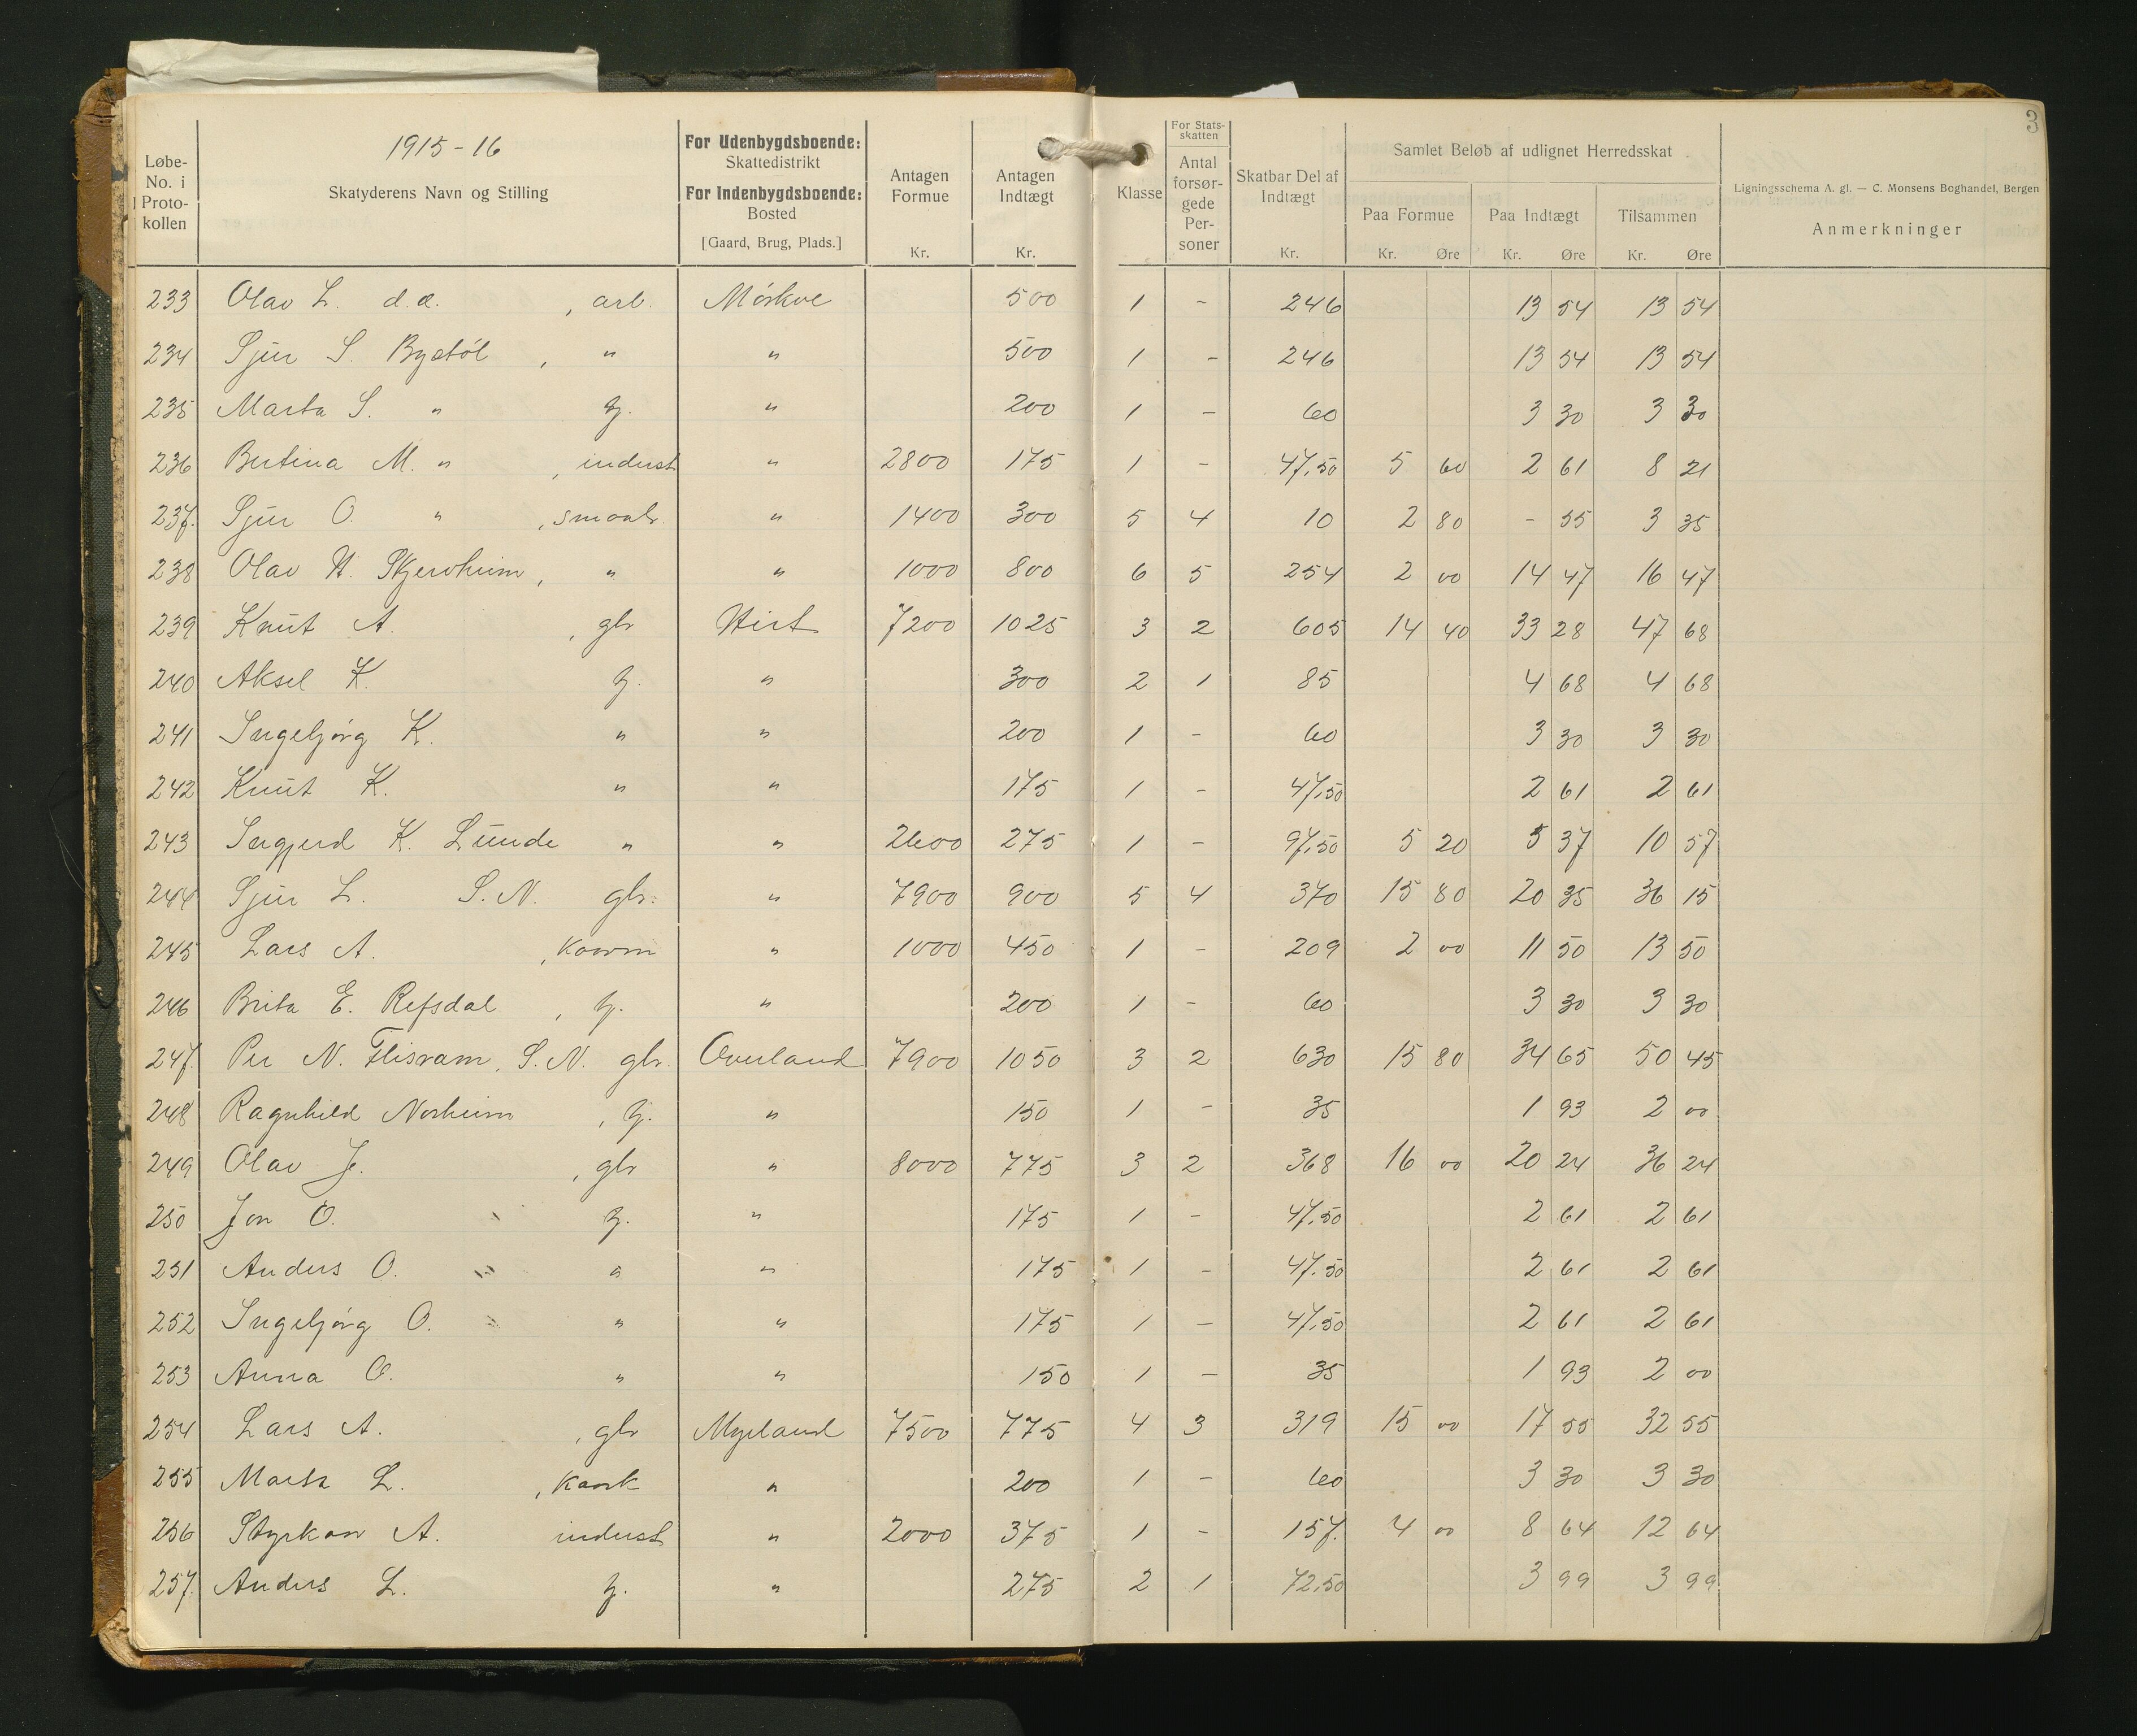 3
1915-16
Løbe-No. i Proto-kollen | Skatyderens Navn og Stilling | For Udenbygdsboende: Skattedistrikt For Indenbygdsboende: Bosted [Gaard, Brug, Plads.] | Antagen Formue Kr. | Antagen Indtægt Kr. | Klasse | For Stats-skatten Antal forsør-gede Per-soner | Skatbar Del af Indtægt Kr. | Samlet Beløb af udlignet Herredsskat Paa Formue Kr. Øre | Paa Indtægt Kr. Øre | Tilsammen Kr. Øre | Ligningsschema A. gl. — C. Monsens Boghandel, Bergen Anmerkninger
233 Olav L. d.æ. , arb. Mørkve 500 1 - 246 13 54 13 54
234 Sjur S. Bystøl , " " 500 1 - 246 13 54 13 54
235 Marta S. " tj. " 200 1 - 60 3 30 3 30
236 Bertina M. " , indust " 2800 175 1 - 47,50 5 60 2 61 8 21
237. Sjur O. " , smaabr. " 1400 300 5 4 10 2 80 - 55 3 35
238 Olav H. Skjervheim , " " 1000 800 6 5 254 2 00 14 47 16 47
239 Knut A. , gbr Hirt 7200 1025 3 2 605 14 40 33 28 47 68
240 Aksel K. tj. " 300 2 1 85 4 68 4 68
241 Ingebjørg K. " " 200 1 - 60 3 30 3 30
242 Knut K. " " 175 1 - 47,50 2 61 2 61
243 Ingjerd K. Lunde " " 2600 275 1 - 97,50 5 20 5 37 10 57
244 Sjur L. S. N. gbr. " 7900 900 5 4 370 15 80 20 35 36 15
245 Lars A. , kaarm " 1000 450 1 - 209 2 00 11 50 13 50
246 Brita E. Refsdal , tj. " 200 1 - 60 3 30 3 30
247. Per N. Flisram, S. N. gbr. Overland 7900 1050 3 2 630 15 80 34 65 50 45
248 Ragnhild Norheim , tj. " 150 1 - 35 1 93 2 00
249 Olav J. , gbr " 8000 775 3 2 368 16 00 20 24 36 24
250 Jon O. " tj. " 175 1 - 47,50 2 61 2 61
251 Anders O. " " " 175 1 - 47.50 2 61 2 61
252 Ingebjørg O. " " " 175 1 - 47,50 2 61 2 61
253 Anna O. " " 150 1 - 35 1 93 2 00
254 Lars A. , gbr Myrland 7500 775 4 3 319 15 00 17 55 32 55
255 Marta L. , kaark " 200 1 - 60 3 30 3 30
256 Styrkar A. indust " 2000 375 1 - 157. 4 00 8 64 12 64
257. Anders L. tj. " 275 2 1 72,50 3 99 3 99